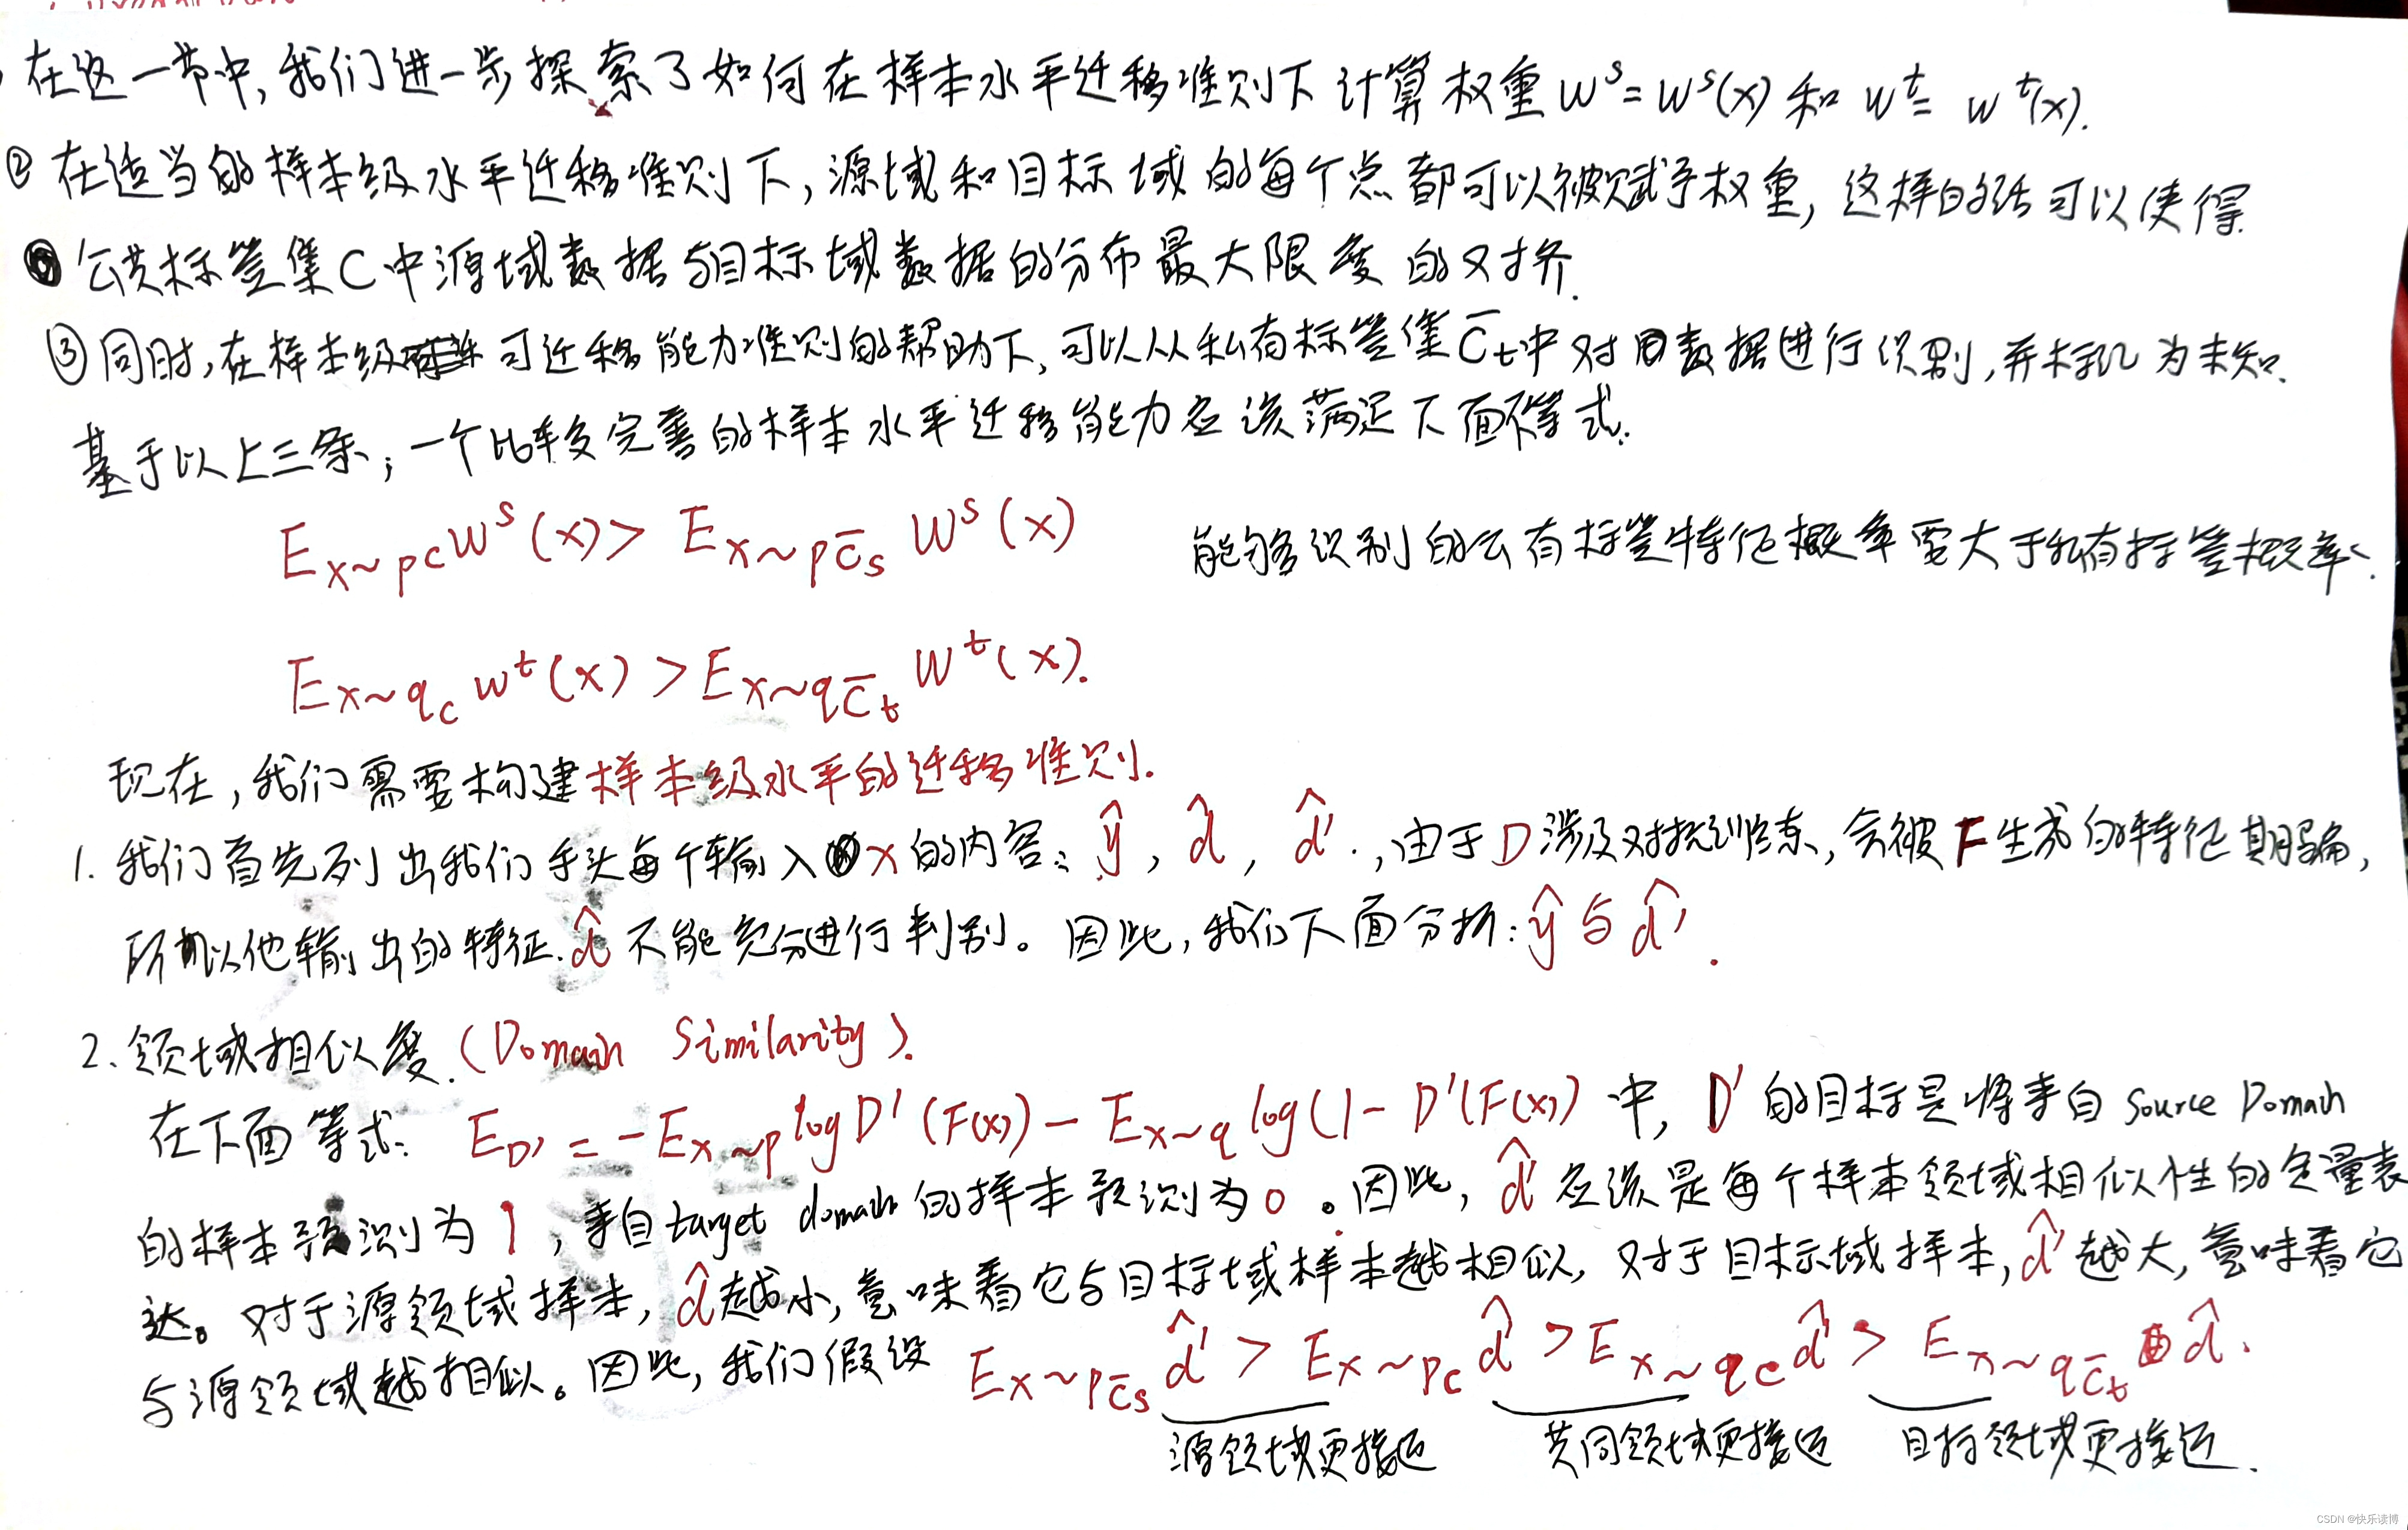 在这一节中,我们进一步探索了如何在样本水平迁移准则下计算权重 Wˢ=Wˢ(x) 和 wᵗ= wᵗ(x).
② 在适当的样本级水平迁移准则下,源域和目标域的每个点都可以被赋予权重,这样的话可以使得
公共标签集C中源域数据与目标域数据的分布最大限度的对齐.
③同时,在样本级可迁移能力准则的帮助下,可以从私有标签集C̄t中对数据进行识别,并标记为未知.
基于以上三条;一个比较完善的样本水平迁移能力应该满足下面不等式.
E x~pc Wˢ(x) > E x~pC̄s Wˢ(x) 能够识别的公有标签特征概率要大于私有标签概率.
E x~qc wᵗ(x) > E x~qC̄t Wᵗ(x).
现在,我们需要构建样本级水平的迁移准则.
1. 我们首先列出我们手头每个输入x的内容: ŷ, d̂, d̂'., 由于D涉及对抗训练,会被F生成的特征欺骗,
所以他输出的特征.d̂不能充分进行判别。因此,我们下面分析:ŷ与d̂'.
2. 领域相似度.(Domain Similarity).
在下面等式: E_D' = -E x~p log D'(F(x)) - E x~q log(1- D'(F(x)) 中, D'的目标是将来自 Source Domain
的样本预测为1,来自target domain的样本预测为0。因此, d̂'应该是每个样本领域相似性的定量表
达。对于源领域样本,d̂'越小,意味着它与目标域样本越相似,对于目标域样本,d̂'越大,意味着它
与源领域越相似。因此,我们假设 E x~pC̄s d̂' > E x~pc d̂' > E x~qc d̂' > E x~qC̄t d̂.
源领域更接近 共同领域更接近 目标领域更接近.
CSDN @快乐读博